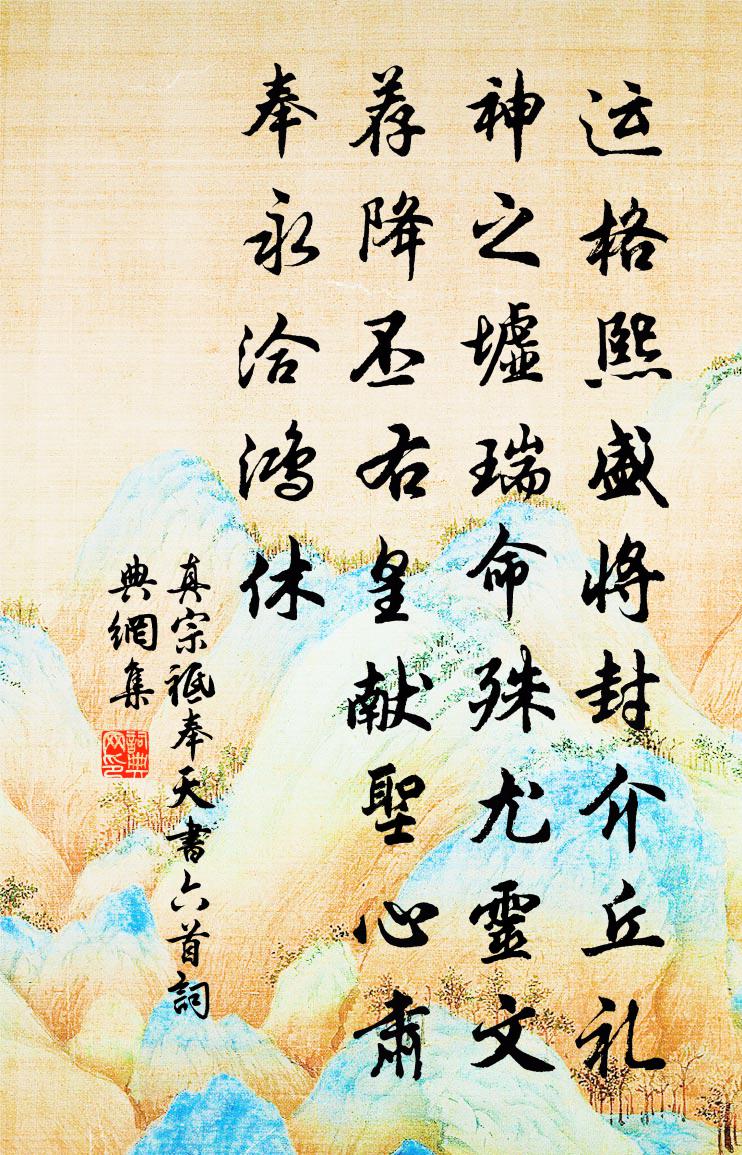 运格熙盛将封介丘礼
神之墟瑞命殊尤靈文
荐降丕右皇献聖心肃
奉永洽鸿休
真宗祗奉天書六首詞
典網集
詞典
网印